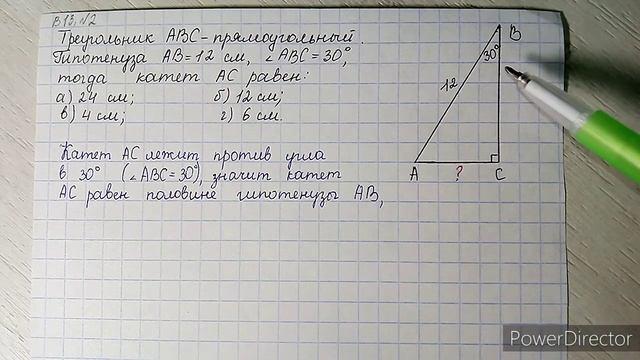 В13, №2
Треугольник АВС - прямоугольный.
Гипотенуза АВ = 12 см, ∠АВС = 30°,
тогда катет АС равен:
а) 24 см; б) 12 см;
в) 4 см; г) 6 см.
Катет АС лежит против угла
в 30° (∠АВС = 30°), значит катет
АС равен половине гипотенузы АВ,
В
30°
12
А ? С
PowerDirector